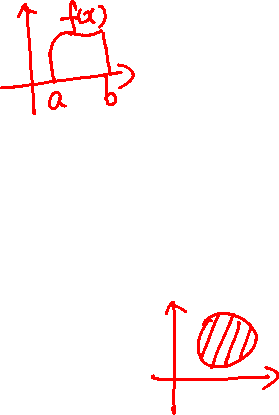 f(x)
a b